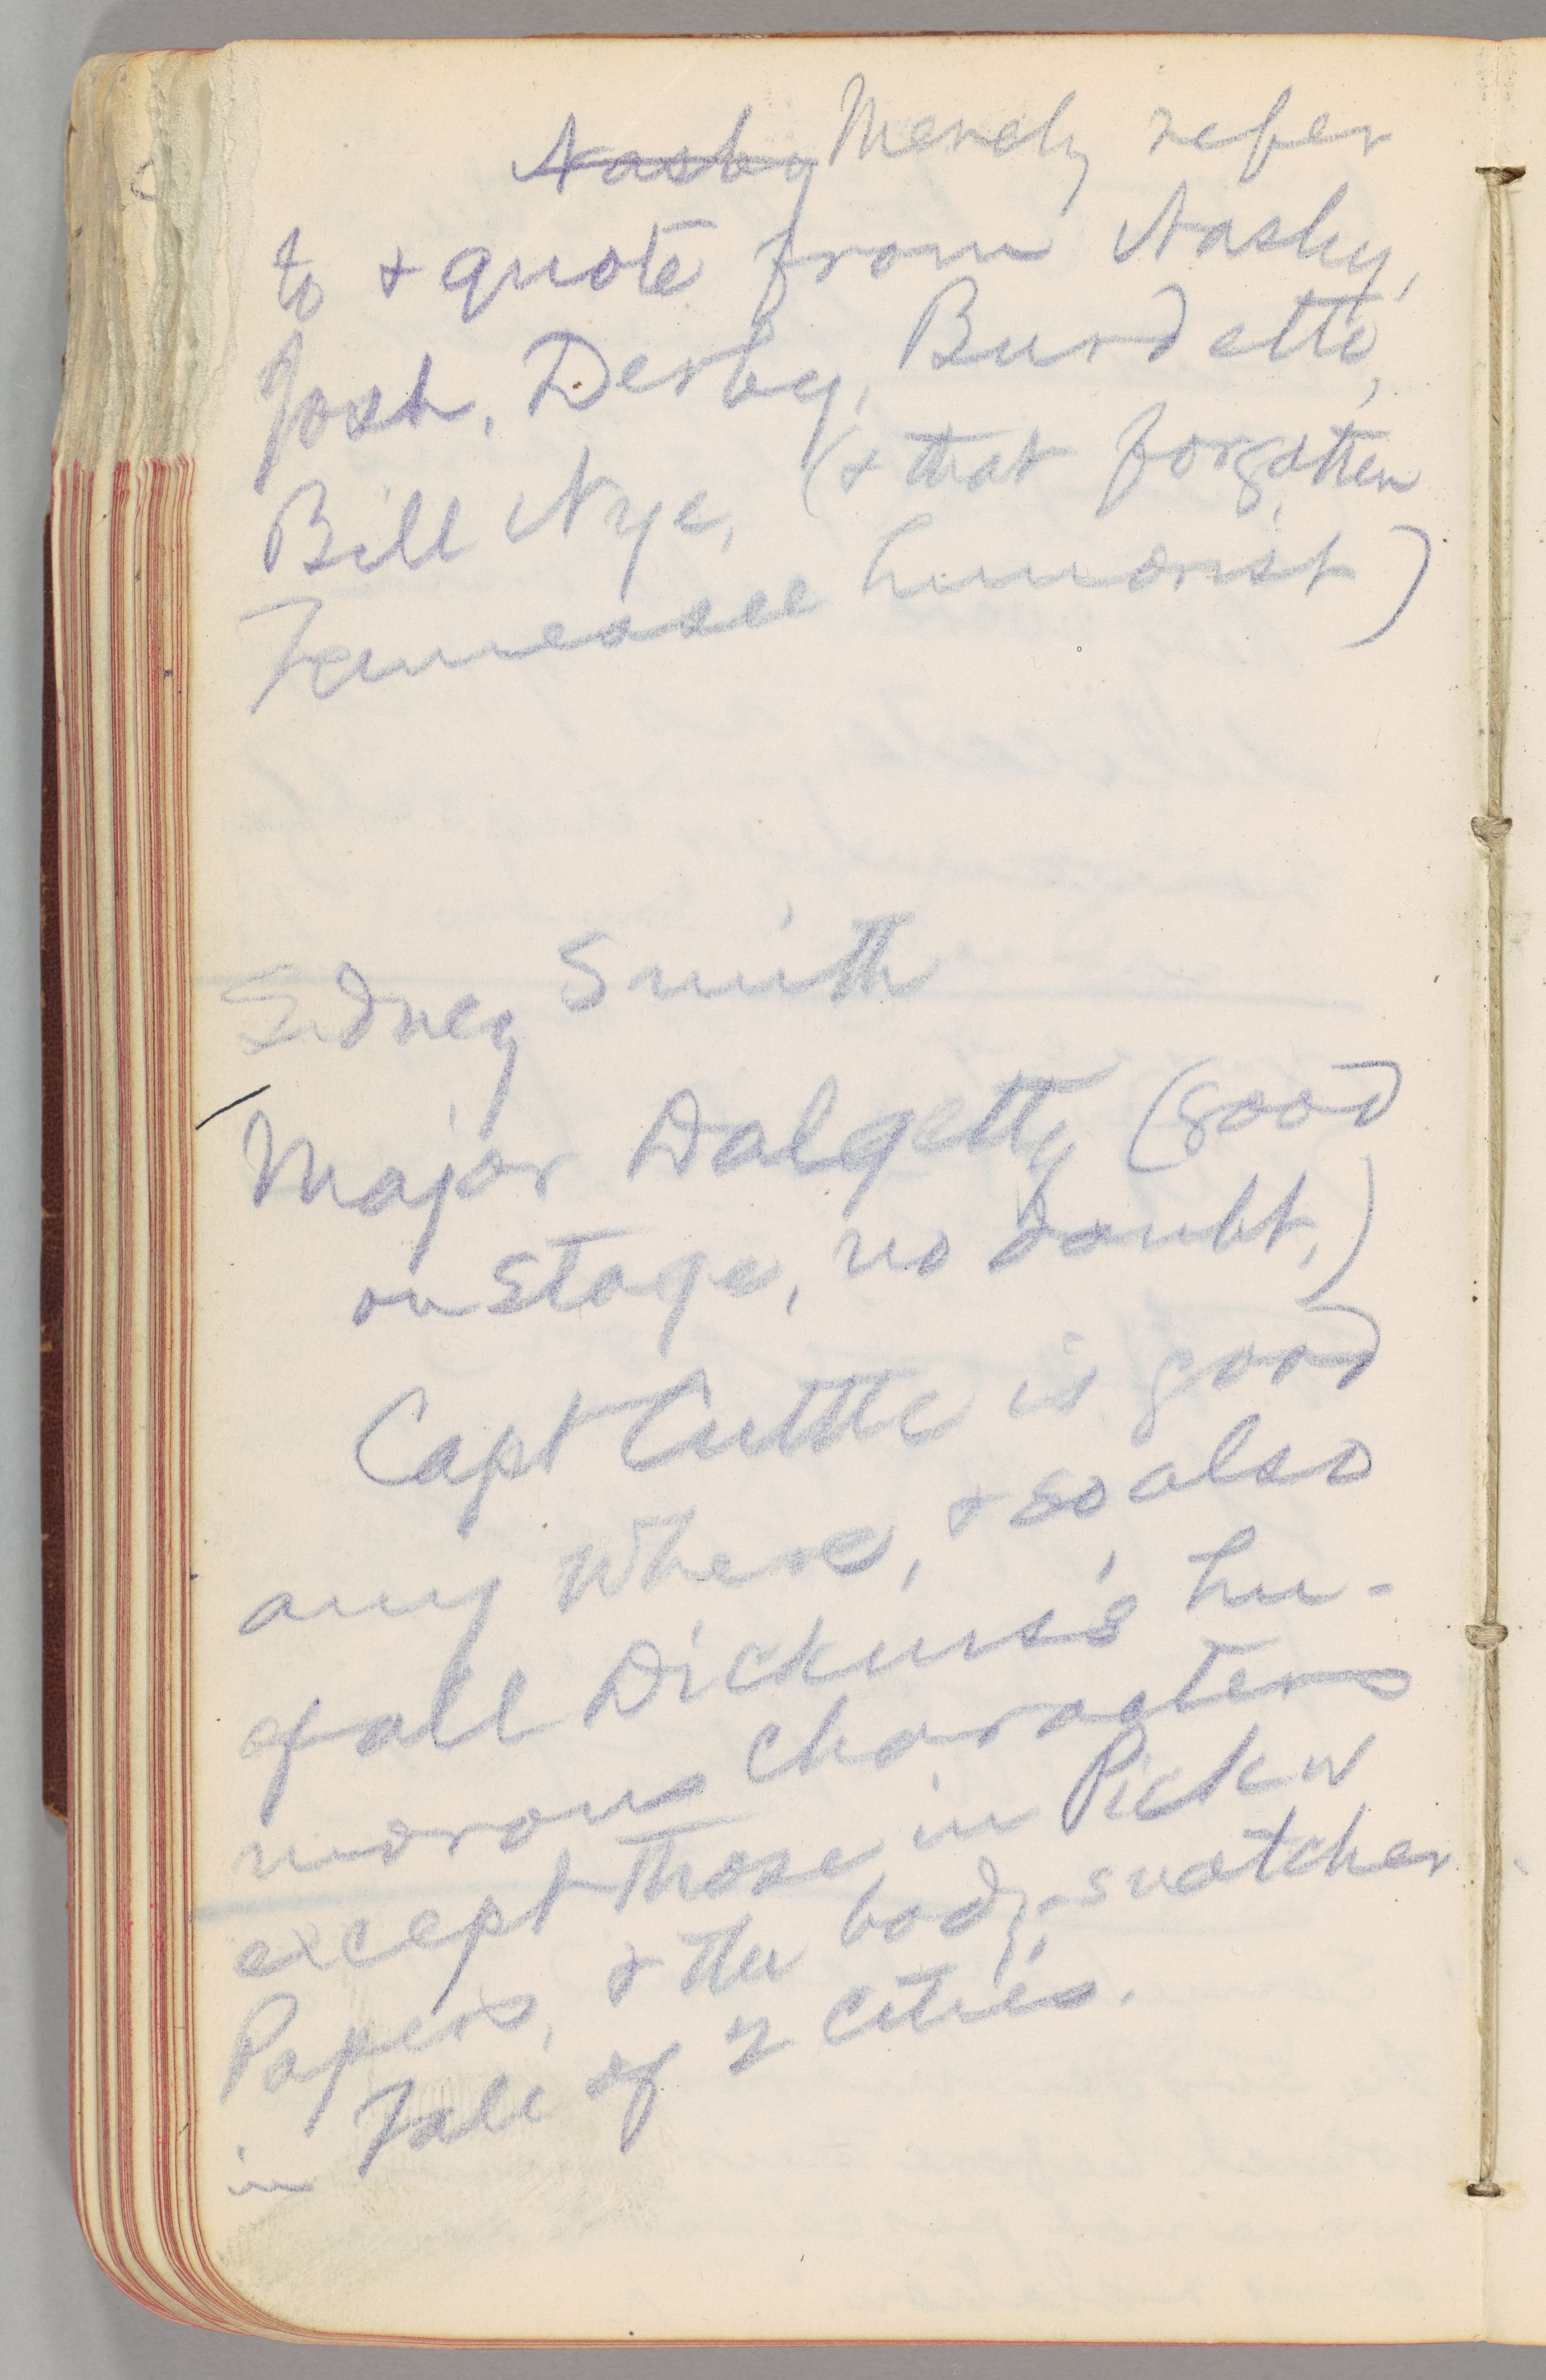 Nasby Merely refer
to & quote from Nasby,
Josh, Derby, Burdette,
Bill Nye, (& that forgotten
Tennessee humorist)
Sidney Smith
Major Dalgetty (good
on stage, no doubt,)
Capt Cuttle is good
any where, & so also
of all Dickens's hu-
morous characters
except those in Pickw
Papers, & the body-snatcher
in Tale of 2 Cities.